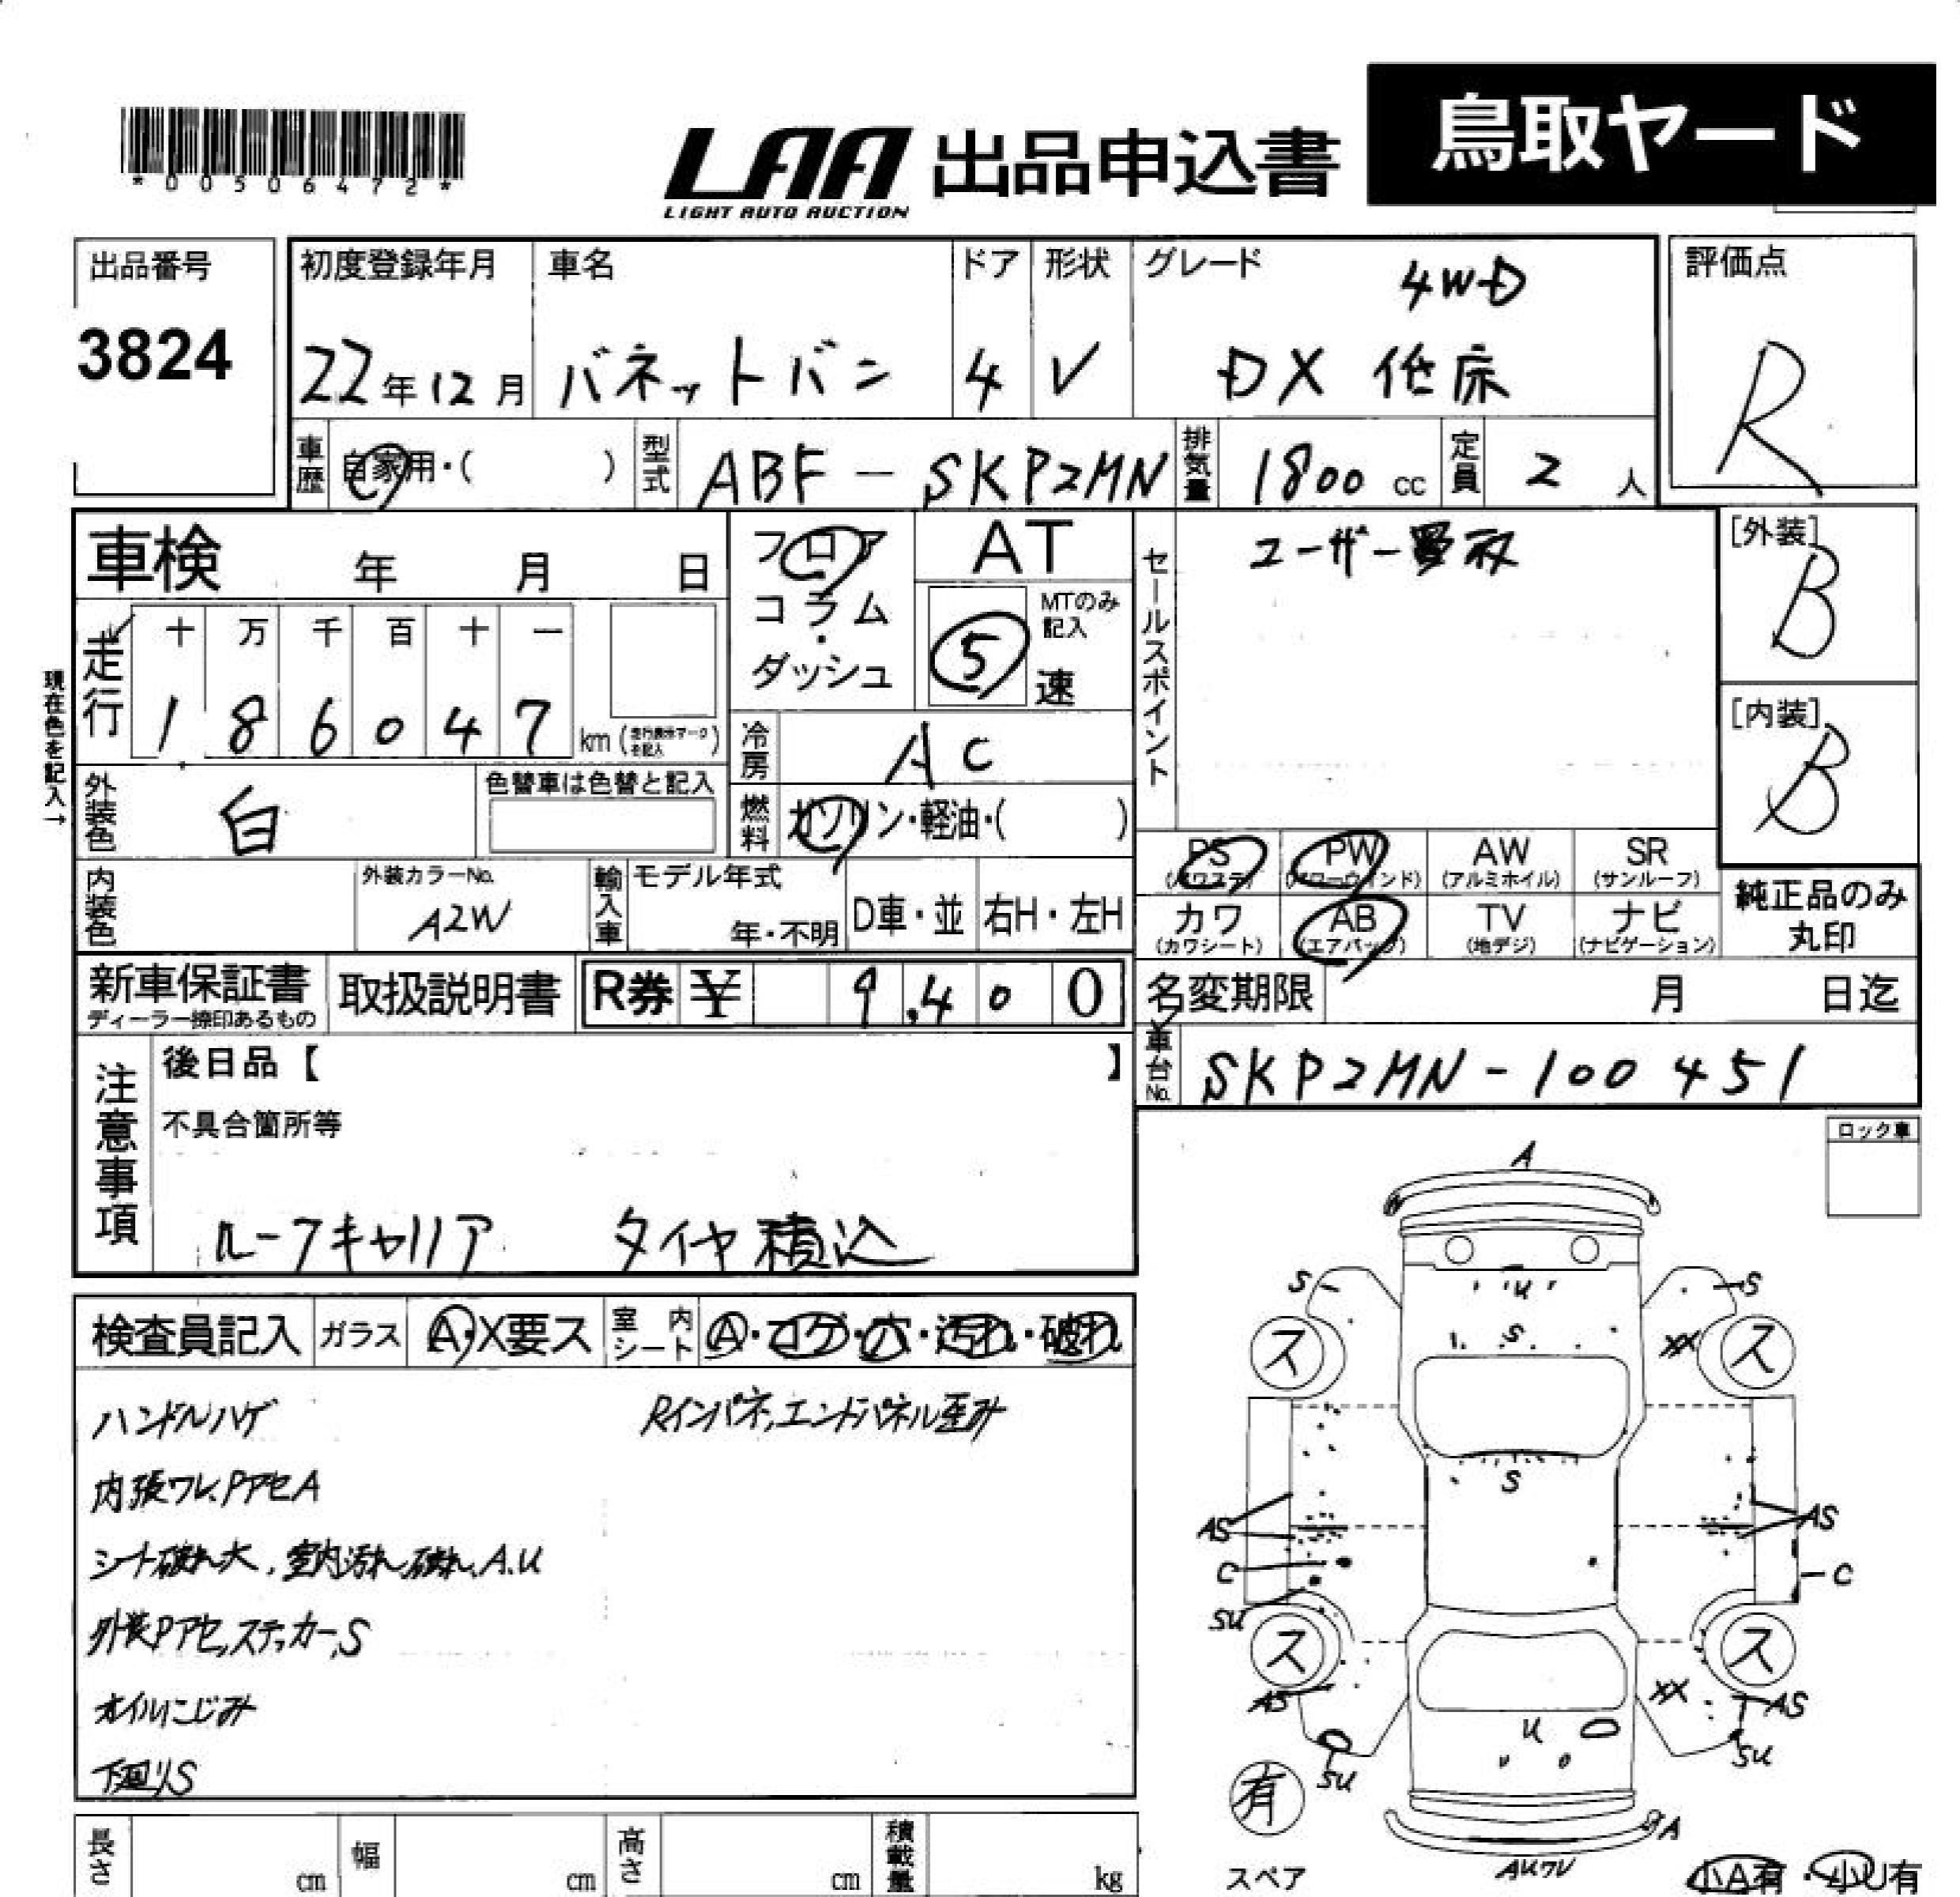 *00506472*
LAA 出品申込書 鳥取ヤード
LIGHT AUTO AUCTION
出品番号 3824
初度登録年月 22年12月
車名 バネットバン
ドア 4
形状 V
グレード 4WD
DX 低床
評価点 R
車歴 自家用・( )
型式 ABF-SKP2MN
排気量 1800 cc
定員 2 人
車検 年 月 日
フロア
コラム
・
ダッシュ
AT
MTのみ記入
5 速
セールスポイント ユーザー買取
[外装] B
[内装] B
現在色を記入→
走行 十 万 千 百 十 一
1 8 6 0 4 7 km (走行表示マークを記入)
冷房 AC
外装色 白
色替車は色替と記入
燃料 ガソリン・軽油・( )
PS (パワステ) PW (パワーウィンド) AW (アルミホイル) SR (サンルーフ)
カワ (カワシート) AB (エアバック) TV (地デジ) ナビ (ナビゲーション)
純正品のみ
丸印
内装色
外装カラーNo. A2W
輸入車 モデル年式
年・不明 D車・並 右H・左H
新車保証書
ディーラー捺印あるもの
取扱説明書 R券 ¥ 9,400
名変期限 月 日迄
車台No. SKP2MN-100451
注意事項
後日品【 】
不具合箇所等
ルーフキャリア タイヤ積込
ロック車
検査員記入 ガラス A・X要ス 室内シート A・コゲ・穴・汚れ・破れ
ハンドルハゲ Rインパネ,エンドパネル歪み
内張ワレ、PアセA
シート破れ大、室内汚れ、破れ、A.U
外装Pアセ,ステッカー,S
オイルにじみ
下回りS
A
S U S
S XX
ス ス
S
AS AS
C C
SU
ス ス
AS XX AS
U
SU SU
有
スペア
A
AUワレ
小A有・小U有
長さ cm 幅 cm 高さ cm 積載量 kg